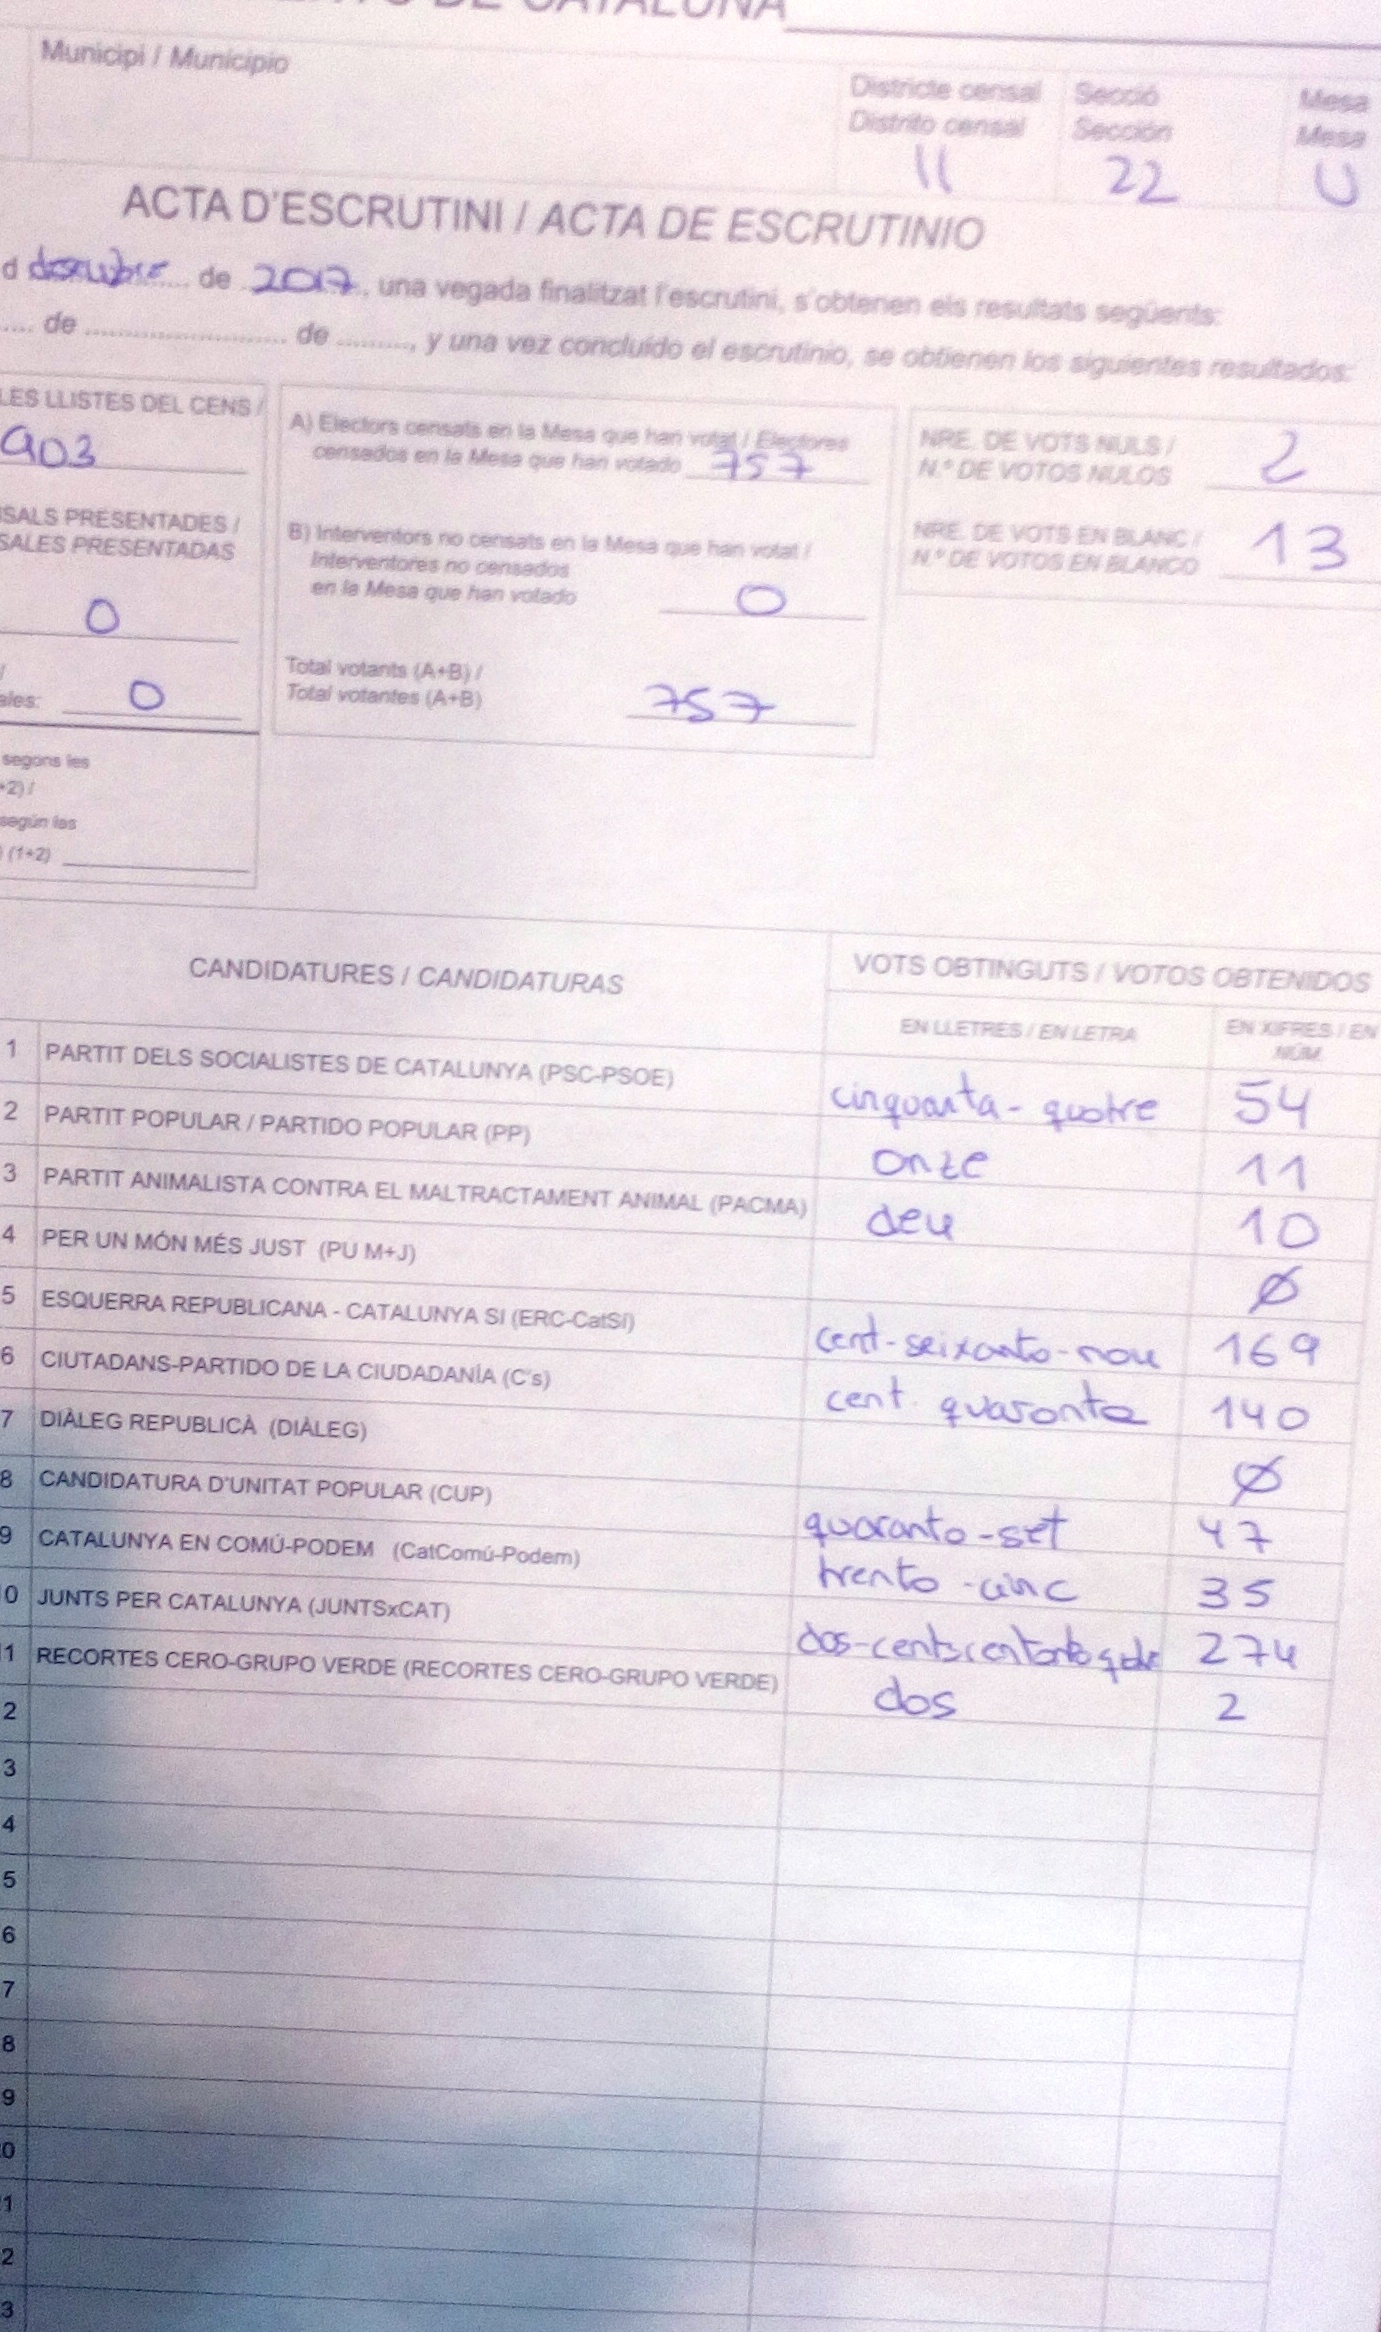 DE CATALUÑA
Municipi / Municipio
Districte censal Secció Mesa
Distrito censal Sección Mesa
11 22 U
ACTA D'ESCRUTINI / ACTA DE ESCRUTINIO
d desembre de 2017, una vegada finalitzat l'escrutini, s'obtenen els resultats següents:
de de , y una vez concluido el escrutinio, se obtienen los siguientes resultados:
LES LLISTES DEL CENS /
903
SALS PRESENTADES /
SALES PRESENTADAS
0
/
ales: 0
segons les
+2) /
según las
(1+2)
A) Electors censats en la Mesa que han votat / Electores
censados en la Mesa que han votado 757
B) Interventors no censats en la Mesa que han votat /
Interventores no censados
en la Mesa que han votado 0
Total votants (A+B) /
Total votantes (A+B) 757
NRE. DE VOTS NULS /
N.º DE VOTOS NULOS 2
NRE. DE VOTS EN BLANC /
N.º DE VOTOS EN BLANCO 13
CANDIDATURES / CANDIDATURAS VOTS OBTINGUTS / VOTOS OBTENIDOS
EN LLETRES / EN LETRA EN XIFRES / EN
NÚM.
1 PARTIT DELS SOCIALISTES DE CATALUNYA (PSC-PSOE) cinquanta-quatre 54
2 PARTIT POPULAR / PARTIDO POPULAR (PP) onze 11
3 PARTIT ANIMALISTA CONTRA EL MALTRACTAMENT ANIMAL (PACMA) deu 10
4 PER UN MÓN MÉS JUST (PU M+J) Ø
5 ESQUERRA REPUBLICANA - CATALUNYA SI (ERC-CatSí) cent-seixanta-nou 169
6 CIUTADANS-PARTIDO DE LA CIUDADANÍA (C's) cent quaranta 140
7 DIÀLEG REPUBLICÀ (DIÀLEG) Ø
8 CANDIDATURA D'UNITAT POPULAR (CUP) quaranta-set 47
9 CATALUNYA EN COMÚ-PODEM (CatComú-Podem) trenta-cinc 35
0 JUNTS PER CATALUNYA (JUNTSxCAT) dos-cents 274
1 RECORTES CERO-GRUPO VERDE (RECORTES CERO-GRUPO VERDE) dos 2
2
3
4
5
6
7
8
9
0
1
2
3